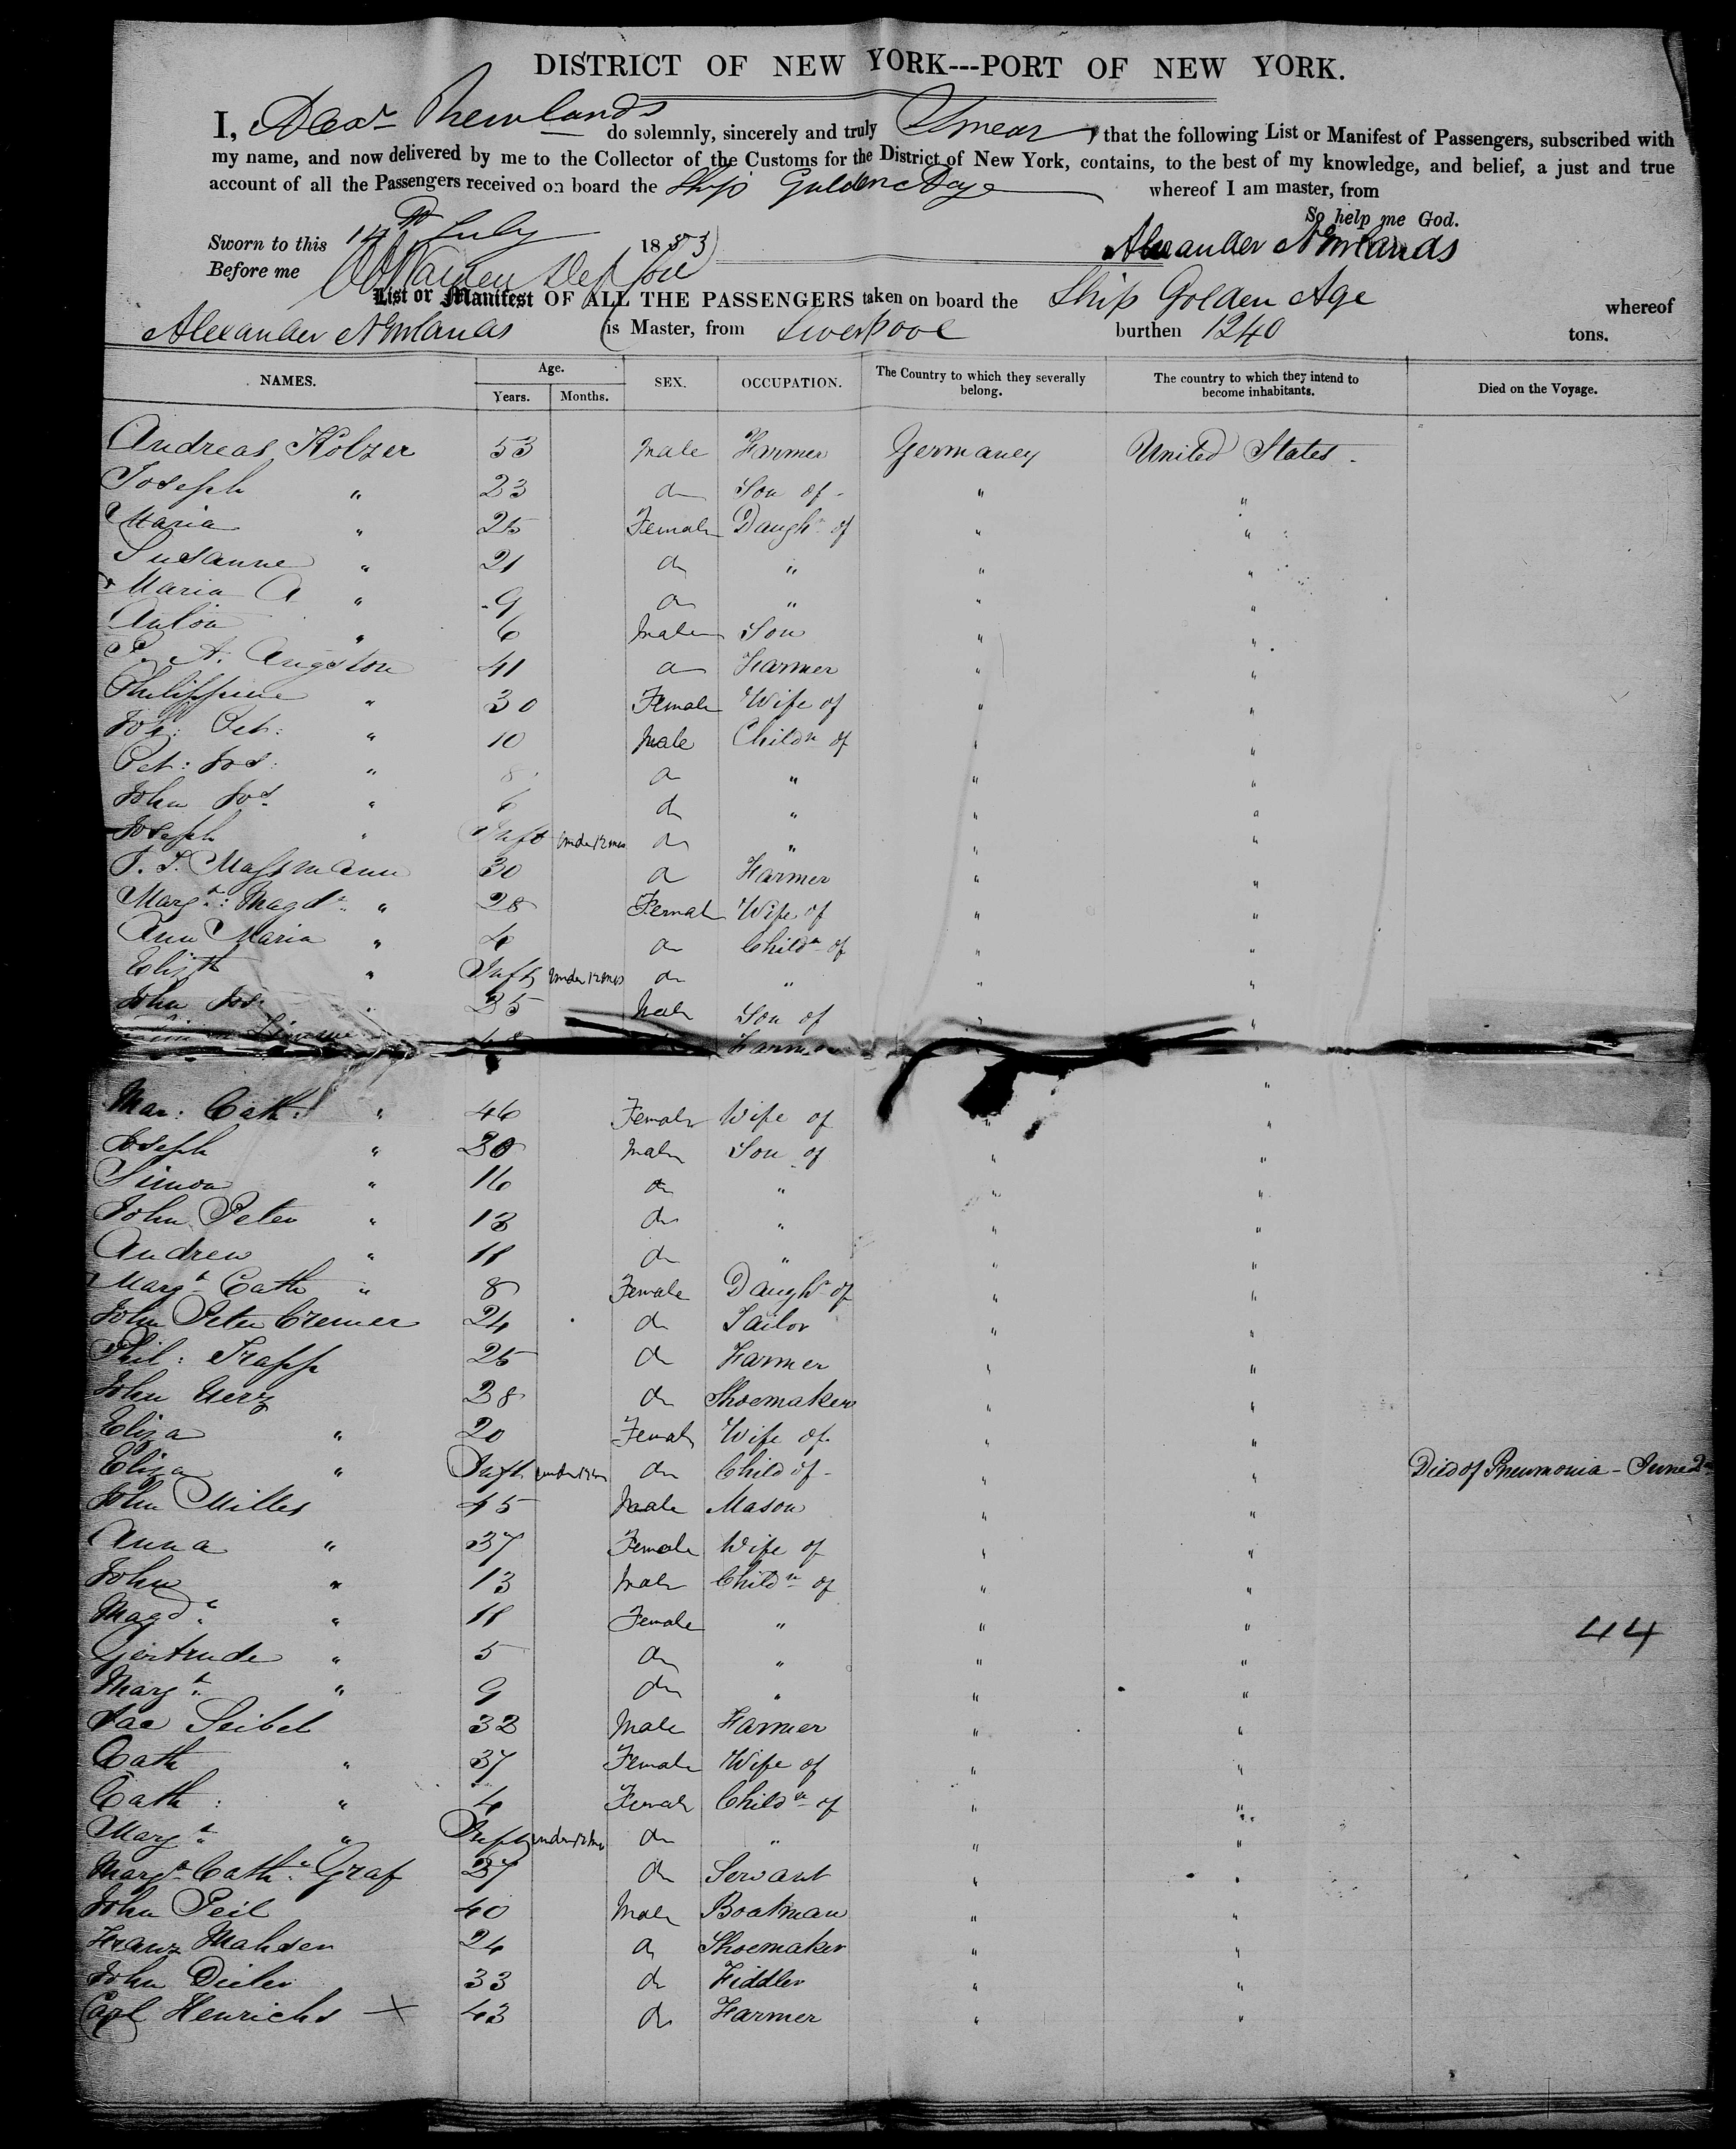 DISTRICT OF NEW YORK---PORT OF NEW YORK.
I, Alexr Newlands do solemnly, sincerely and truly Swear that the following List or Manifest of Passengers, subscribed with
my name, and now delivered by me to the Collector of the Customs for the District of New York, contains, to the best of my knowledge, and belief, a just and true
account of all the Passengers received on board the Ship Golden Age whereof I am master, from
So help me God.
Sworn to this 14th July 1853 Alexander Newlands
Before me
List or Manifest OF ALL THE PASSENGERS taken on board the Ship Golden Age whereof
Alexander Newlands is Master, from Liverpool burthen 1240 tons.
NAMES. Age. Years. Months. SEX. OCCUPATION. The Country to which they severally belong. The country to which they intend to become inhabitants. Died on the Voyage.
Andreas Holzer 53 Male Farmer Germaney United States.
Joseph " 23 do Son of " "
Maria " 25 Female Daughr of " "
Susanne " 21 do " " "
Maria A " 9 do " " "
Anton " 6 Male Son " "
P. A. Angston 41 do Farmer " "
Philippine " 30 Female Wife of " "
Joh: Pet: " 10 Male Childn of " "
Pet: Jos: " 8 do " " "
John Jos. " 6 do " " "
Joseph " Inft under 12 mos do " " "
J. J. Massmann 30 do Farmer " "
Margt: Magdn " 28 Female Wife of " "
Ann Maria " 4 do Childn of " "
Elizth " Inft under 12 mos do " " "
John Jos " 25 Male Son of " "
Farmer
Mar: Cath: " 46 Female Wife of " "
Joseph " 20 Male Son of " "
Simon " 16 do " " "
John Peter " 13 do " " "
Andrew " 11 do " " "
Margt Cath " 8 Female Daughr of " "
John Peter Cremer 24 do Tailor " "
Phil: Trapp 25 do Farmer " "
John 28 do Shoemaker " "
Eliza " 20 Female Wife of " "
Eliza " Inft under 12 m do Child of " " Died of Pneumonia - June 2
John Milles 45 Male Mason " "
Anna " 37 Female Wife of " "
John " 13 Male Childn of " "
Magd: " 11 Female " " "
Gertrude " 5 do " " "
Margt: " 9 do " " "
44
Jac Seibel 32 Male Farmer " "
Cath " 37 Female Wife of " "
Cath: " 4 Female Childn of " "
Margt: " Inft under 12 mos do " " "
Margt Cathn Graf 27 do Servant " "
John Peil 40 Male Boatman " "
Franz Mahsen 24 do Shoemaker " "
John Dieler 33 do Fiddler " "
Carl Henrichs 43 do Farmer " "